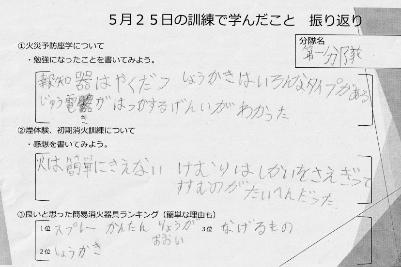 5月25日の訓練で学んだこと 振り返り
分隊名
第一分隊
①火災予防座学について
・勉強になったことを書いてみよう。
報知器はやくだつ しょうかきはいろんなタイプがある
じゅう電器がはっかするげんいがわかった
②煙体験、初期消火訓練について
・感想を書いてみよう。
火は簡単にきえない けむりはしかいをさえぎって
すすむのがたいへんだった
③良いと思った簡易消火器具ランキング(簡単な理由も)
1位 スプレー かんたん りょうが 3位 なげるもの
おおい
2位 しょうかき